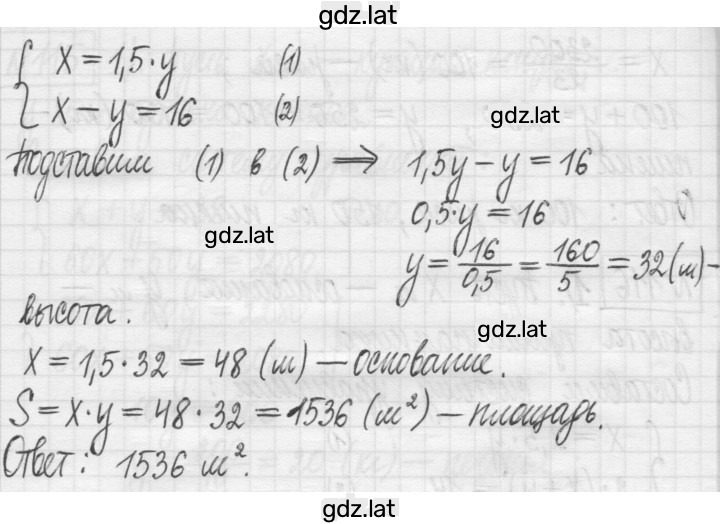 gdz.lat
{ x = 1,5·y (1)
x − y = 16 (2)
gdz.lat
Подставим (1) в (2) ⟹ 1,5y − y = 16
0,5·y = 16
gdz.lat
y = 16/0,5 = 160/5 = 32 (м) −
высота.
gdz.lat
x = 1,5 · 32 = 48 (м) − основание.
S = x·y = 48 · 32 = 1536 (м²) − площадь.
Ответ: 1536 м².
gdz.lat